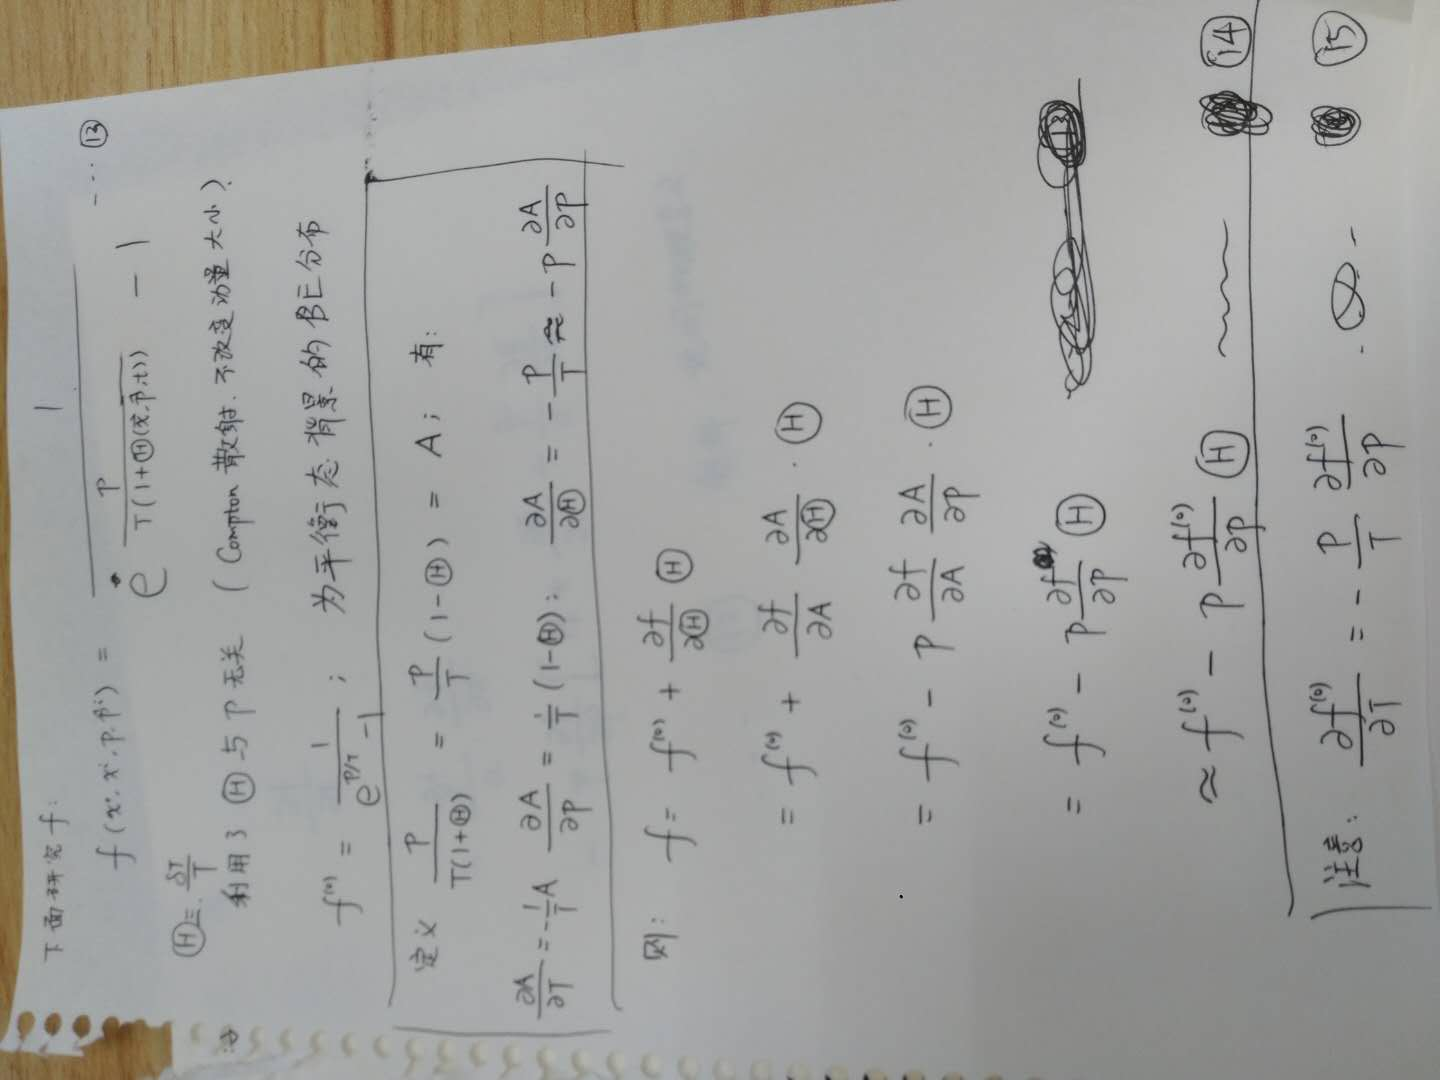 下面研究 f:
f(x⁰, xⁱ, p, p̂ⁱ) = 1 / (e^{P / T(1+Ⓗ(x, p̂, t))} - 1) --- ⑬
Ⓗ ≡ δT/T
利用了 Ⓗ 与 P 无关 (Compton 散射. 不改变动量大小).
f⁽⁰⁾ = 1 / (e^{P/T} - 1) ; 为平衡态背景的BE分布
定义 P / T(1+Ⓗ) = P/T (1-Ⓗ) = A; 有:
∂A/∂T = -1/T A ∂A/∂P = 1/T (1-Ⓗ); ∂A/∂Ⓗ = -P/T ≈ -P ∂A/∂P
则: f = f⁽⁰⁾ + ∂f/∂Ⓗ Ⓗ
= f⁽⁰⁾ + ∂f/∂A ∂A/∂Ⓗ · Ⓗ
= f⁽⁰⁾ - P ∂f/∂A ∂A/∂P · Ⓗ
= f⁽⁰⁾ - P ∂f/∂P Ⓗ
≈ f⁽⁰⁾ - P ∂f⁽⁰⁾/∂P Ⓗ ⑭
注意: ∂f⁽⁰⁾/∂T = - P/T ∂f⁽⁰⁾/∂P ⑮